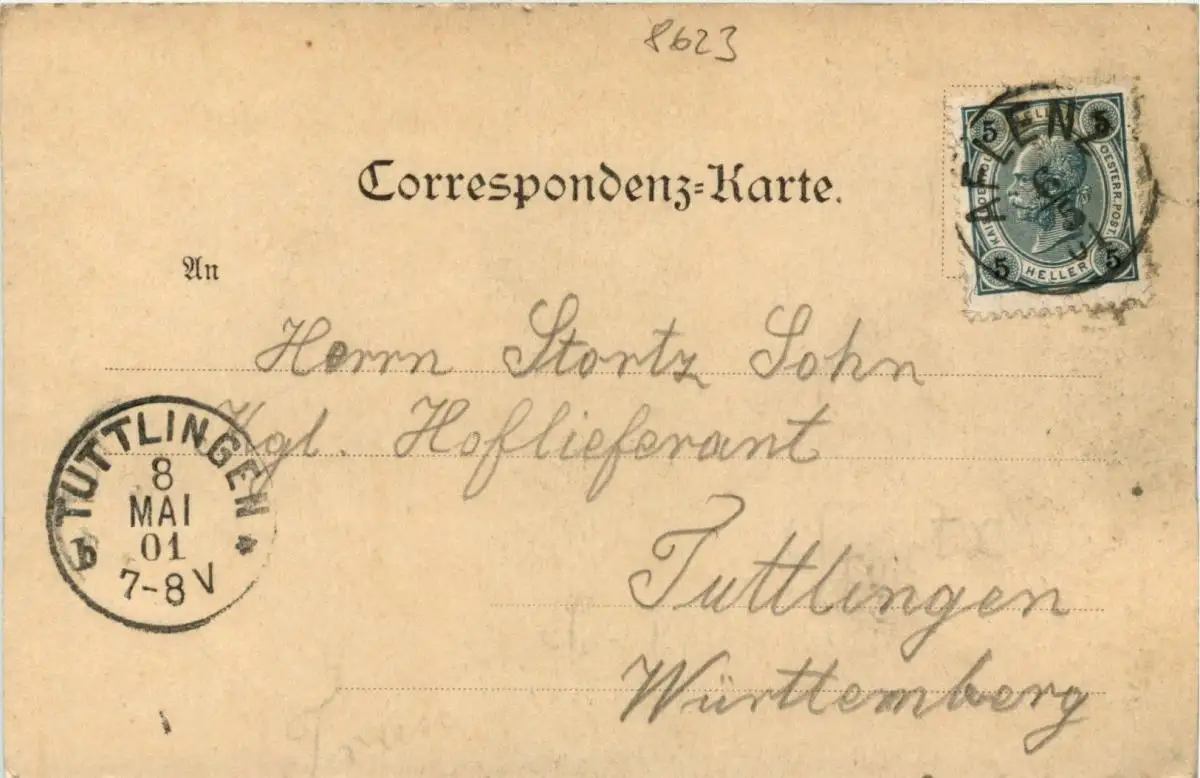 8623
Correspondenz-Karte.
An
AFLENZ
6/5
01
5 5
KAIS. KOENIGL. OESTERR. POST.
5 HELLER 5
Herrn Stortz Sohn
Kgl. Hoflieferant
Tuttlingen
Württemberg
TUTTLINGEN
8
MAI
01
7-8 V
b